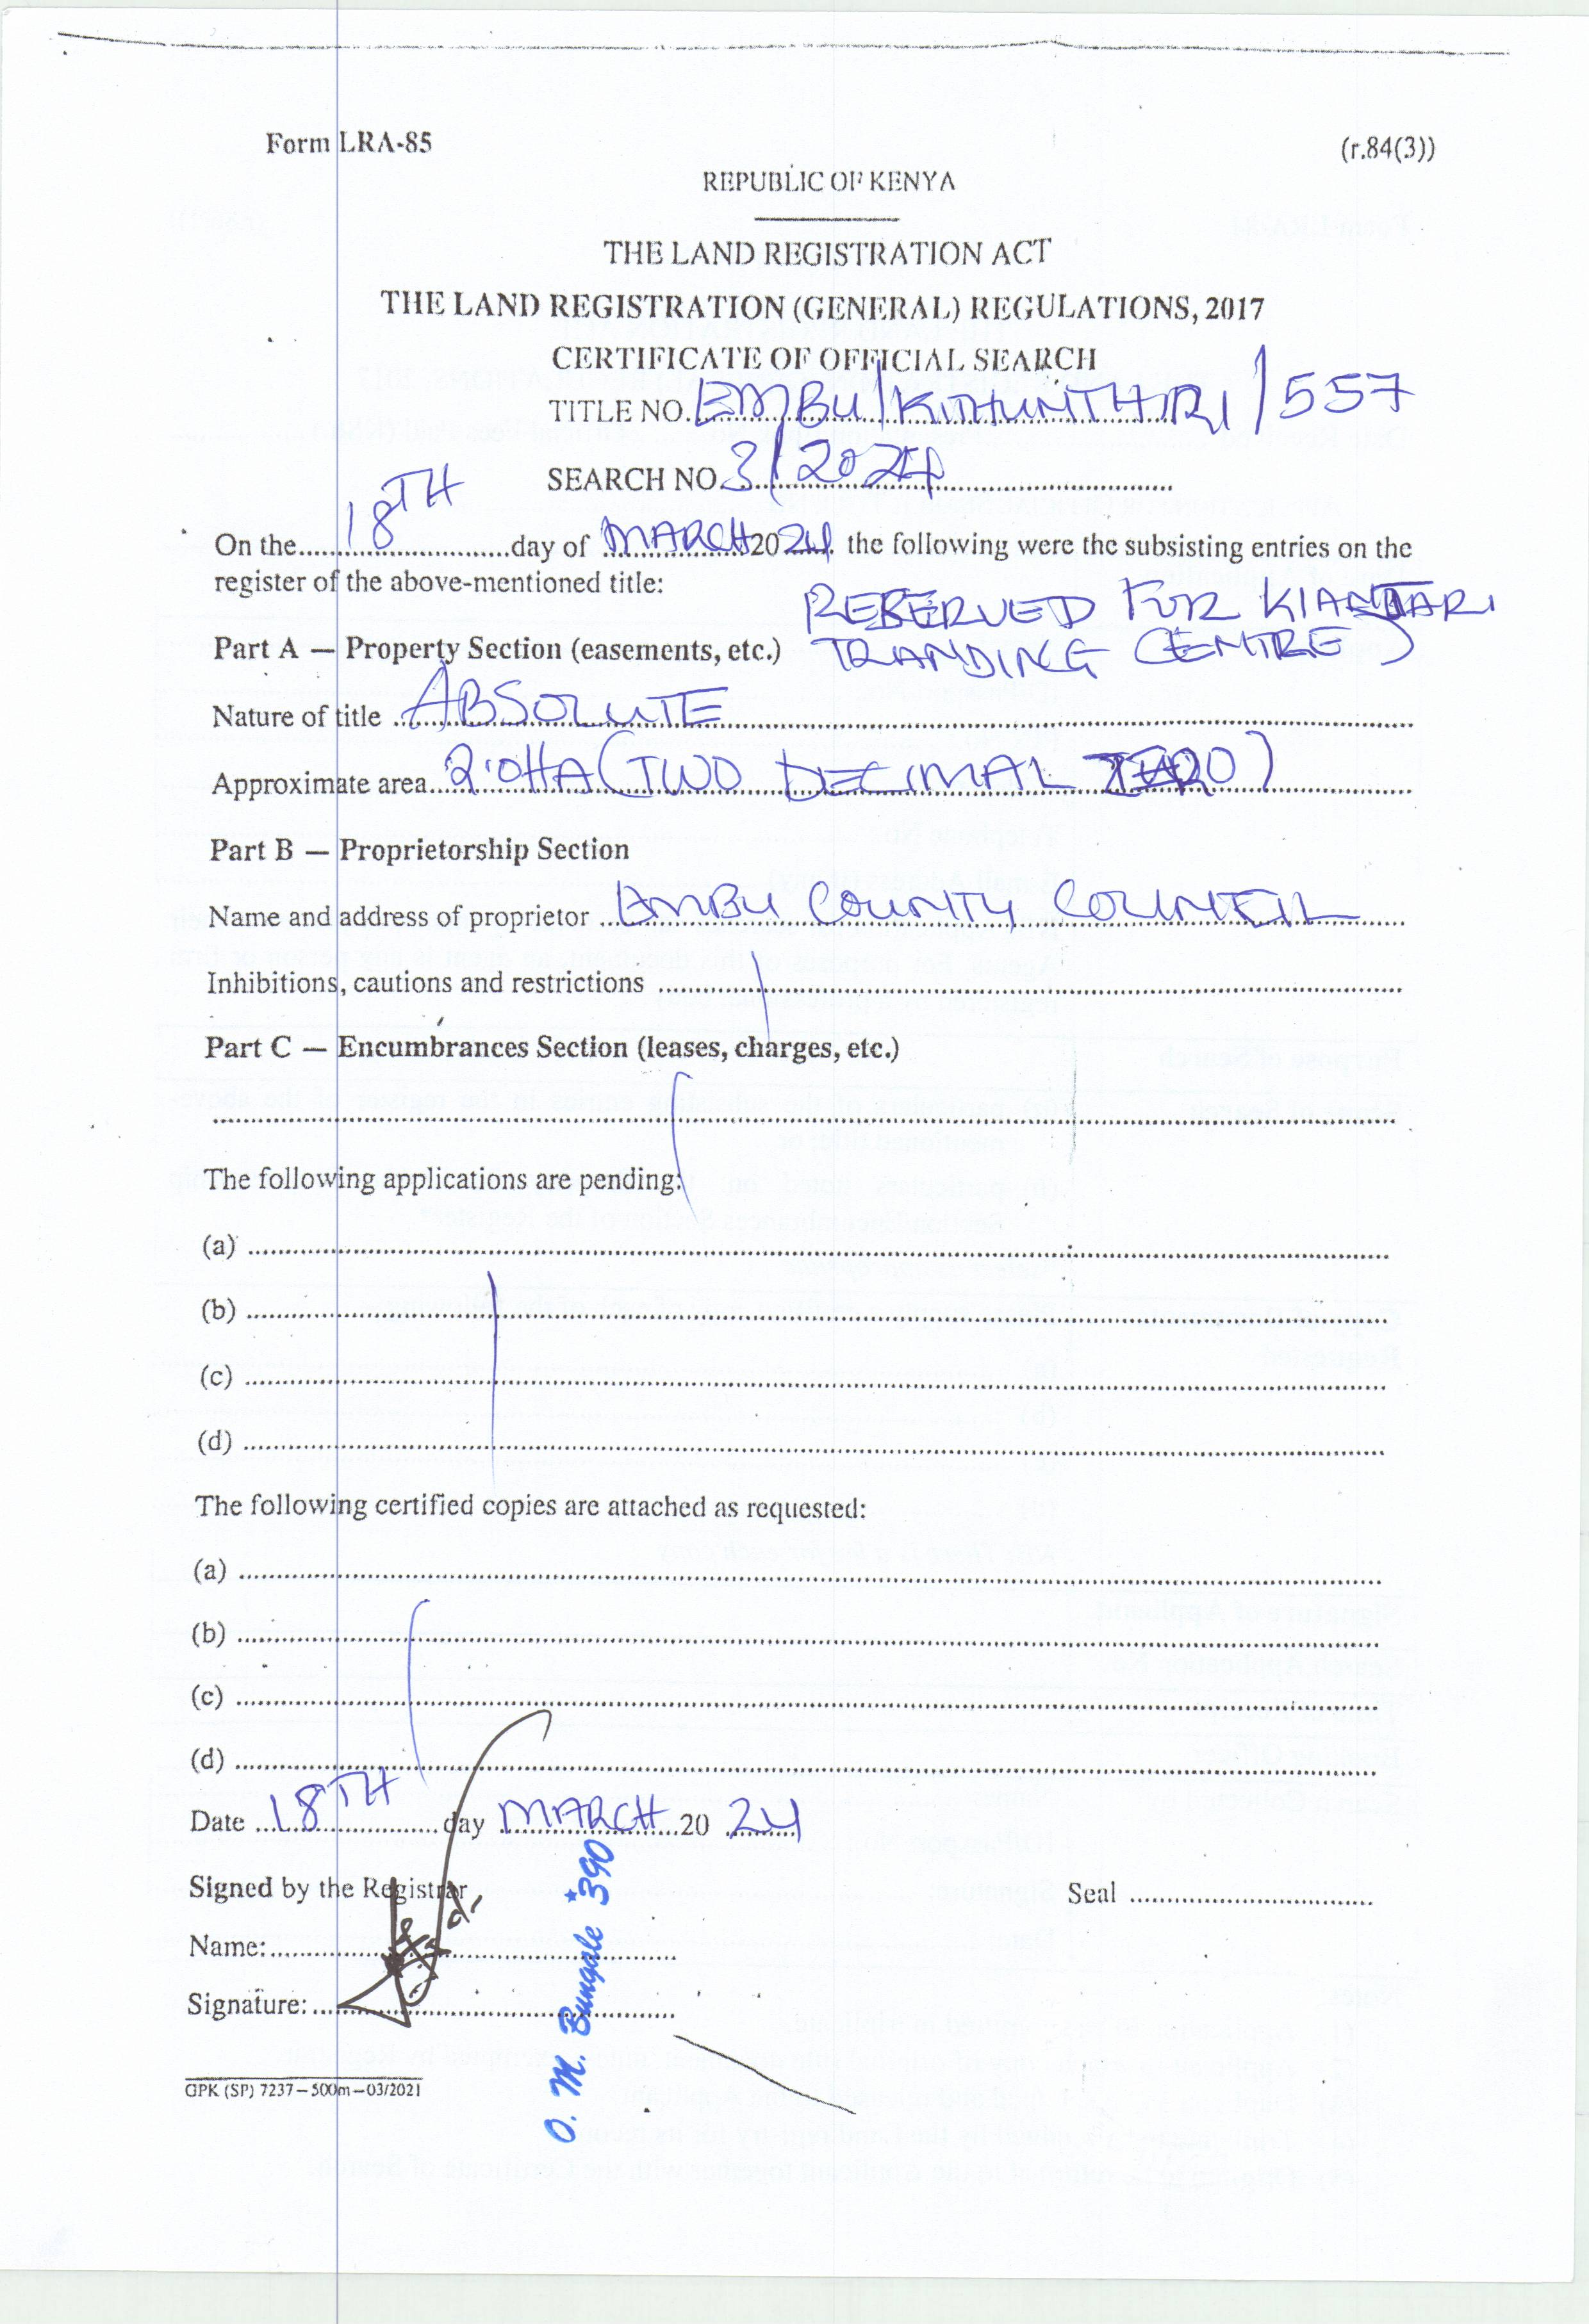 Form LRA-85 (r.84(3))
REPUBLIC OF KENYA
THE LAND REGISTRATION ACT
THE LAND REGISTRATION (GENERAL) REGULATIONS, 2017
CERTIFICATE OF OFFICIAL SEARCH
TITLE NO. EMBU/KITHUNTHIRI/557
SEARCH NO. 3/2024
On the 18TH day of MARCH 2024 the following were the subsisting entries on the
register of the above-mentioned title:
RESERVED FOR
Part A — Property Section (easements, etc.) TRANDING CENTRE)
Nature of title ABSOLUTE
Approximate area 2.0HA (TWO DECIMAL ZERO)
Part B — Proprietorship Section
Name and address of proprietor EMBU COUNTY COUNCIL
Inhibitions, cautions and restrictions
Part C — Encumbrances Section (leases, charges, etc.)
The following applications are pending:
(a)
(b)
(c)
(d)
The following certified copies are attached as requested:
(a)
(b)
(c)
(d)
Date 18TH day MARCH 20 24
Signed by the Registrar Seal
Name:
Signature:
O. M. Bungale *390
GPK (SP) 7237—500m—03/2021